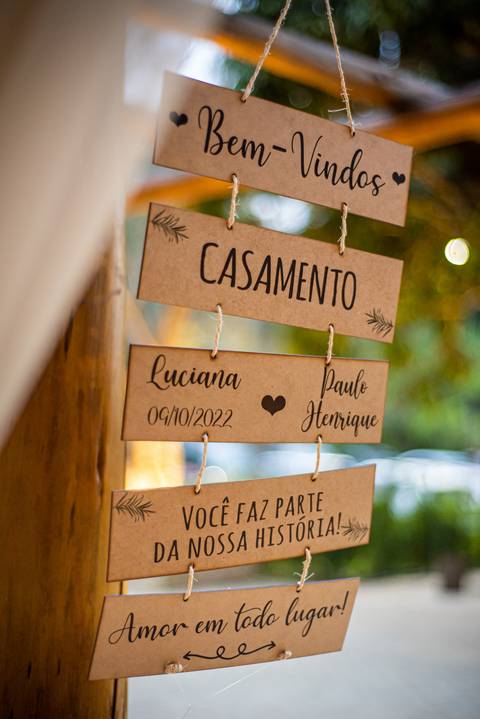 Bem-Vindos
CASAMENTO
Luciana
09/10/2022
Paulo
Henrique
VOCÊ FAZ PARTE
DA NOSSA HISTÓRIA!
Amor em todo lugar!